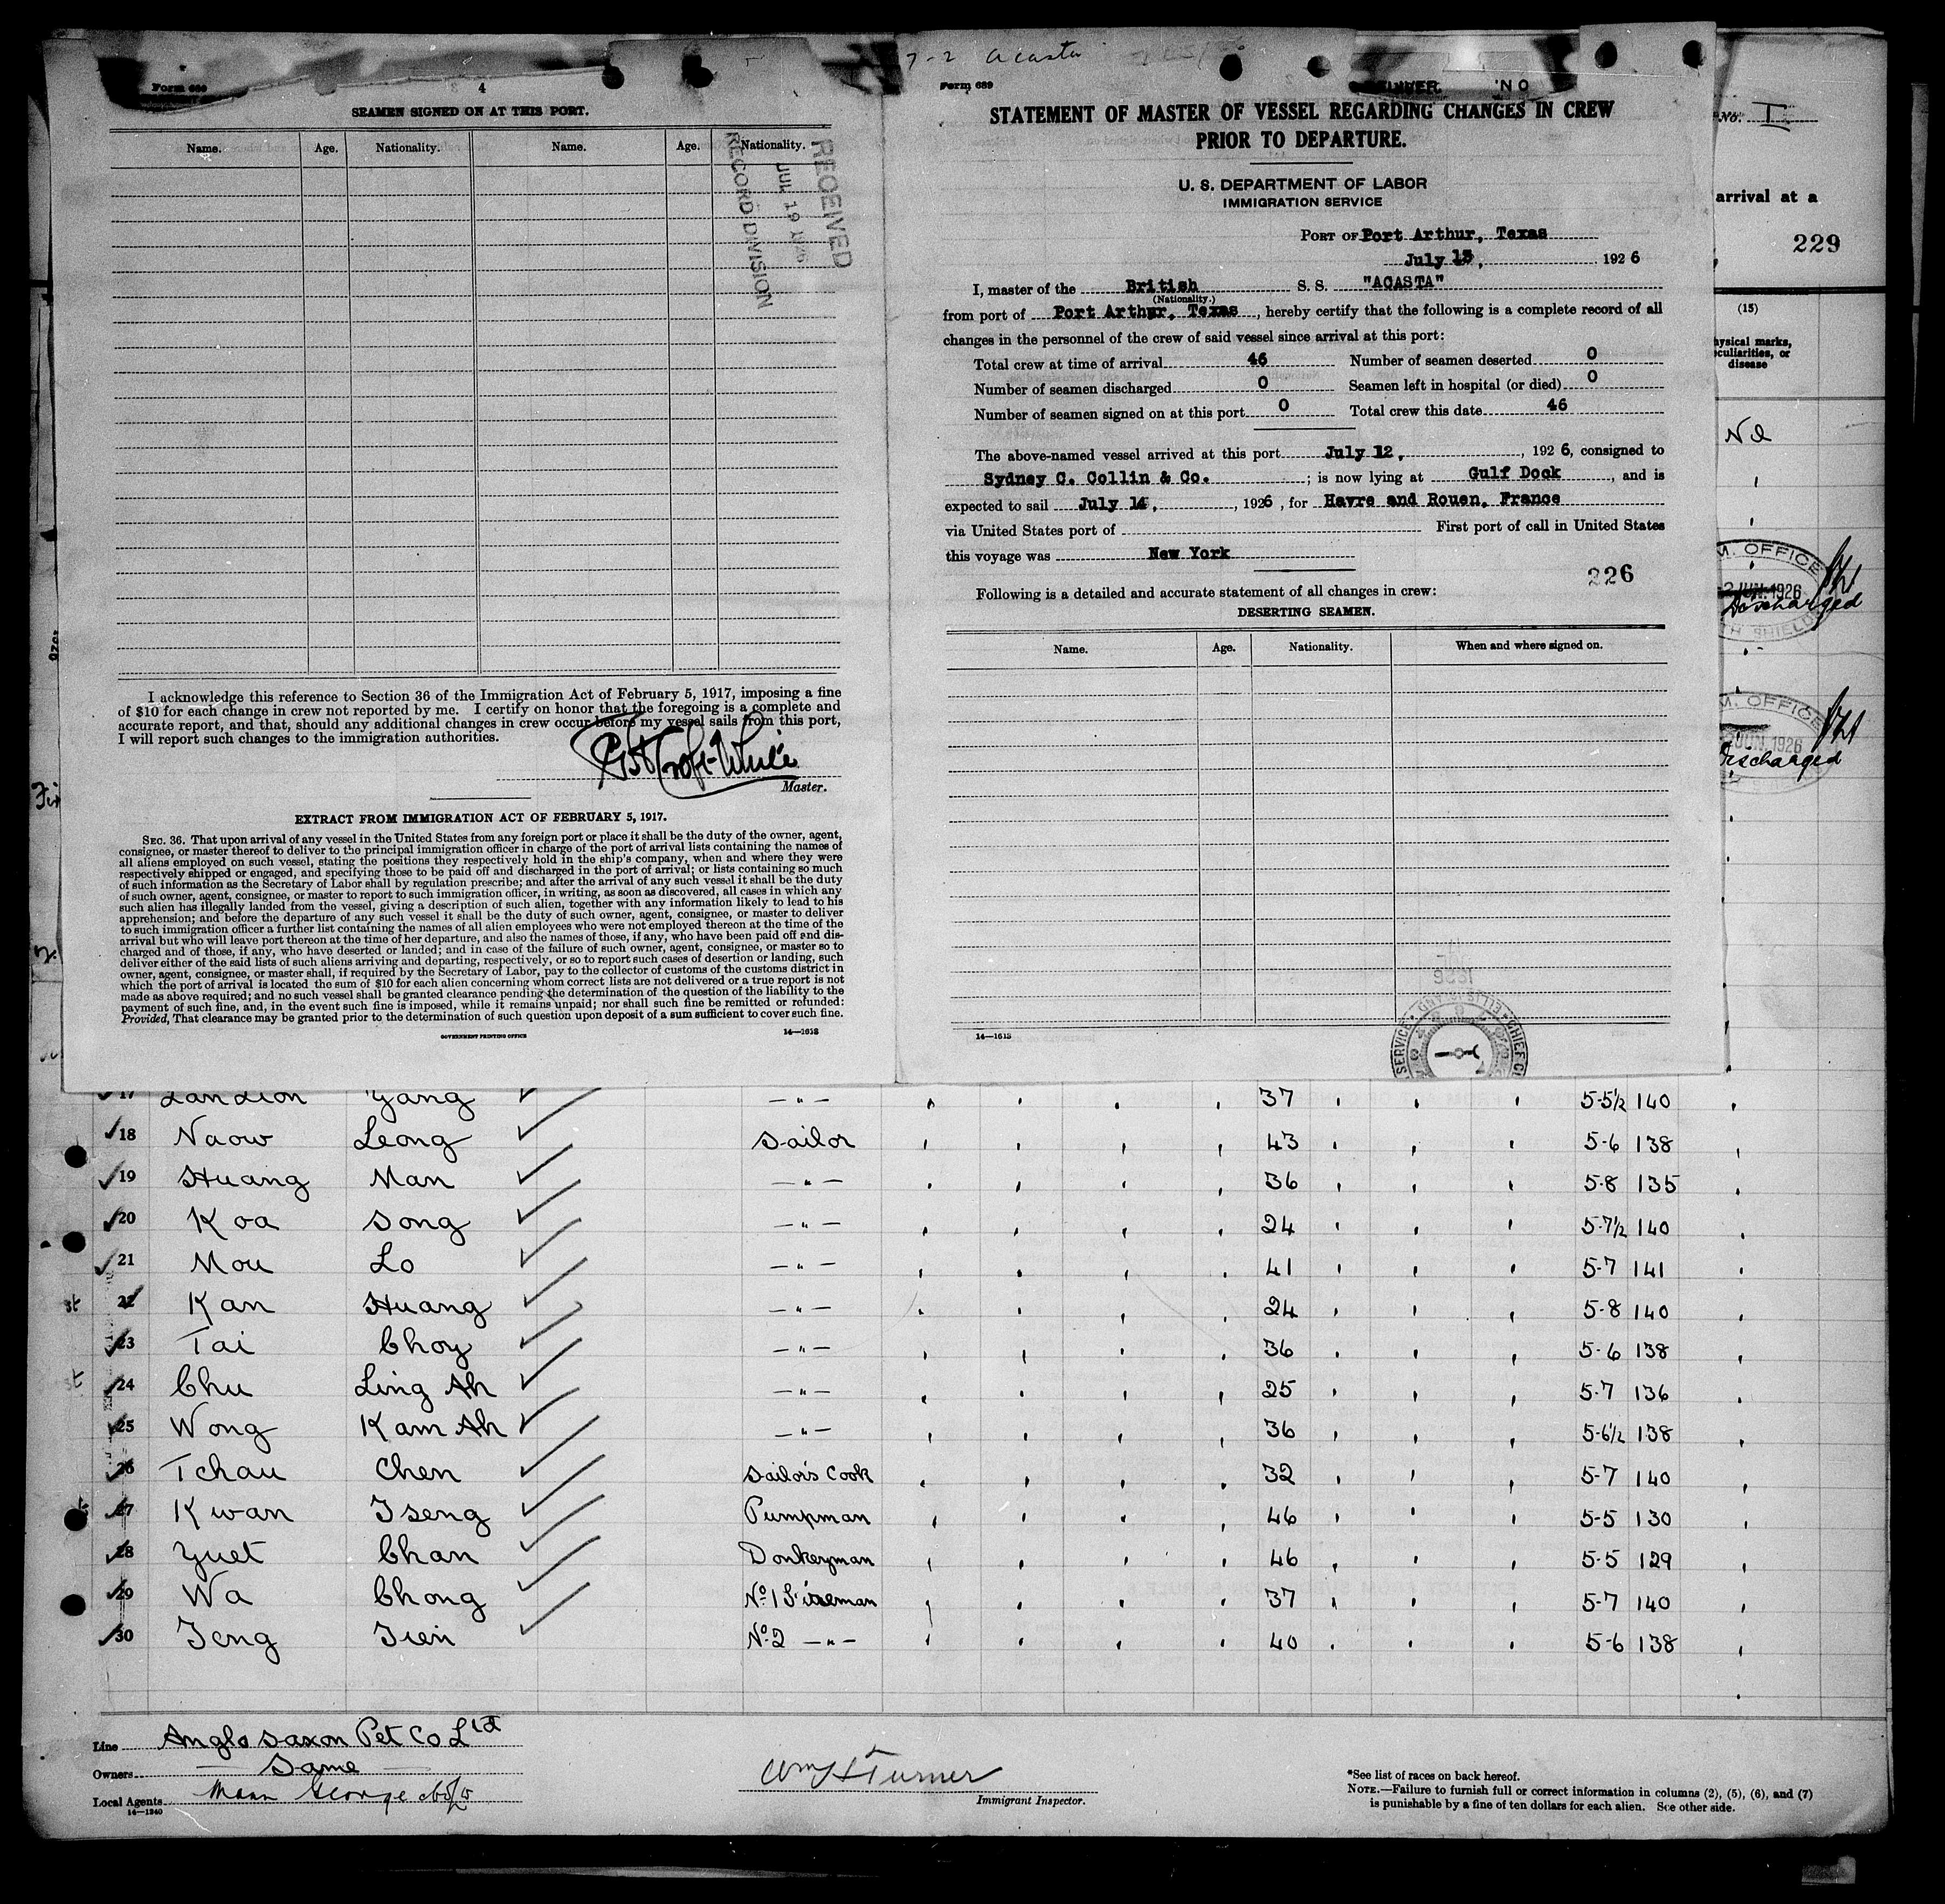 7-2 Acasta
Form 689
4
SEAMEN SIGNED ON AT THIS PORT.
Name. Age. Nationality. Name. Age. Nationality.
RECEIVED
JUL 19 1926
RECORD DIVISION
I acknowledge this reference to Section 36 of the Immigration Act of February 5, 1917, imposing a fine
of $10 for each change in crew not reported by me. I certify on honor that the foregoing is a complete and
accurate report, and that, should any additional changes in crew occur before my vessel sails from this port,
I will report such changes to the immigration authorities.
Master.
EXTRACT FROM IMMIGRATION ACT OF FEBRUARY 5, 1917.
SEC. 36. That upon arrival of any vessel in the United States from any foreign port or place it shall be the duty of the owner, agent,
consignee, or master thereof to deliver to the principal immigration officer in charge of the port of arrival lists containing the names of
all aliens employed on such vessel, stating the positions they respectively hold in the ship's company, when and where they were
respectively shipped or engaged, and specifying those to be paid off and discharged in the port of arrival; or lists containing so much
of such information as the Secretary of Labor shall by regulation prescribe; and after the arrival of any such vessel it shall be the duty
of such owner, agent, consignee, or master to report to such immigration officer, in writing, as soon as discovered, all cases in which any
such alien has illegally landed from the vessel, giving a description of such alien, together with any information likely to lead to his
apprehension; and before the departure of any such vessel it shall be the duty of such owner, agent, consignee, or master to deliver
to such immigration officer a further list containing the names of all alien employees who were not employed thereon at the time of the
arrival but who will leave port thereon at the time of her departure, and also the names of those, if any, who have been paid off and dis-
charged and of those, if any, who have deserted or landed; and in case of the failure of such owner, agent, consignee, or master so to
deliver either of the said lists of such aliens arriving and departing, respectively, or so to report such cases of desertion or landing, such
owner, agent, consignee, or master shall, if required by the Secretary of Labor, pay to the collector of customs of the customs district in
which the port of arrival is located the sum of $10 for each alien concerning whom correct lists are not delivered or a true report is not
made as above required; and no such vessel shall be granted clearance pending the determination of the question of the liability to the
payment of such fine, and, in the event such fine is imposed, while it remains unpaid; nor shall such fine be remitted or refunded:
Provided, That clearance may be granted prior to the determination of such question upon deposit of a sum sufficient to cover such fine.
GOVERNMENT PRINTING OFFICE 14—1613
Form 689
NO
STATEMENT OF MASTER OF VESSEL REGARDING CHANGES IN CREW
PRIOR TO DEPARTURE.
U. S. DEPARTMENT OF LABOR
IMMIGRATION SERVICE
PORT OF Port Arthur, Texas
July 13, 1926
I, master of the British S. S. "ACASTA"
(Nationality.)
from port of Port Arthur, Texas, hereby certify that the following is a complete record of all
changes in the personnel of the crew of said vessel since arrival at this port:
Total crew at time of arrival 46 Number of seamen deserted 0
Number of seamen discharged 0 Seamen left in hospital (or died) 0
Number of seamen signed on at this port 0 Total crew this date 46
The above-named vessel arrived at this port July 12, , 1926, consigned to
Sydney C. Collin & Co. ; is now lying at Gulf Dock , and is
expected to sail July 14, , 1926 , for Havre and Rouen, France
via United States port of First port of call in United States
this voyage was New York
226
Following is a detailed and accurate statement of all changes in crew:
DESERTING SEAMEN.
Name. Age. Nationality. When and where signed on.
14—1613
No. I
arrival at a
229
(15)
hysical marks,
eculiarities, or
disease
Nil
M. OFFICE
2 JUN. 1926
Discharged
TH SHIELD
M. OFFICE
JUN. 1926
Discharged
17 Yang —"— 37 5-5½ 140
18 Naow Leong Sailor 43 5-6 138
19 Huang Man —"— 36 5-8 135
20 Koa Song —"— 24 5-7½ 140
21 Mou Lo —"— 41 5-7 141
22 Kan Huang —"— 24 5-8 140
23 Tai Choy —"— 36 5-6 138
24 Chu Ling Ah —"— 25 5-7 136
25 Wong Kam Ah —"— 36 5-6½ 138
26 Tchau Chen Sailor's Cook 32 5-7 140
27 Kwan Tseng Pumpman 46 5-5 130
28 Yuet Chan Donkeyman 46 5-5 129
29 Wa Chong No. 1 Fireman 37 5-7 140
30 Teng Tien No. 2 —"— 40 5-6 138
Line Anglo Saxon Pet Co Ltd
Owners Same
Local Agents Mann George
14—1240
Wm H Turner
Immigrant Inspector.
*See list of races on back hereof.
NOTE.—Failure to furnish full or correct information in columns (2), (5), (6), and (7)
is punishable by a fine of ten dollars for each alien. See other side.